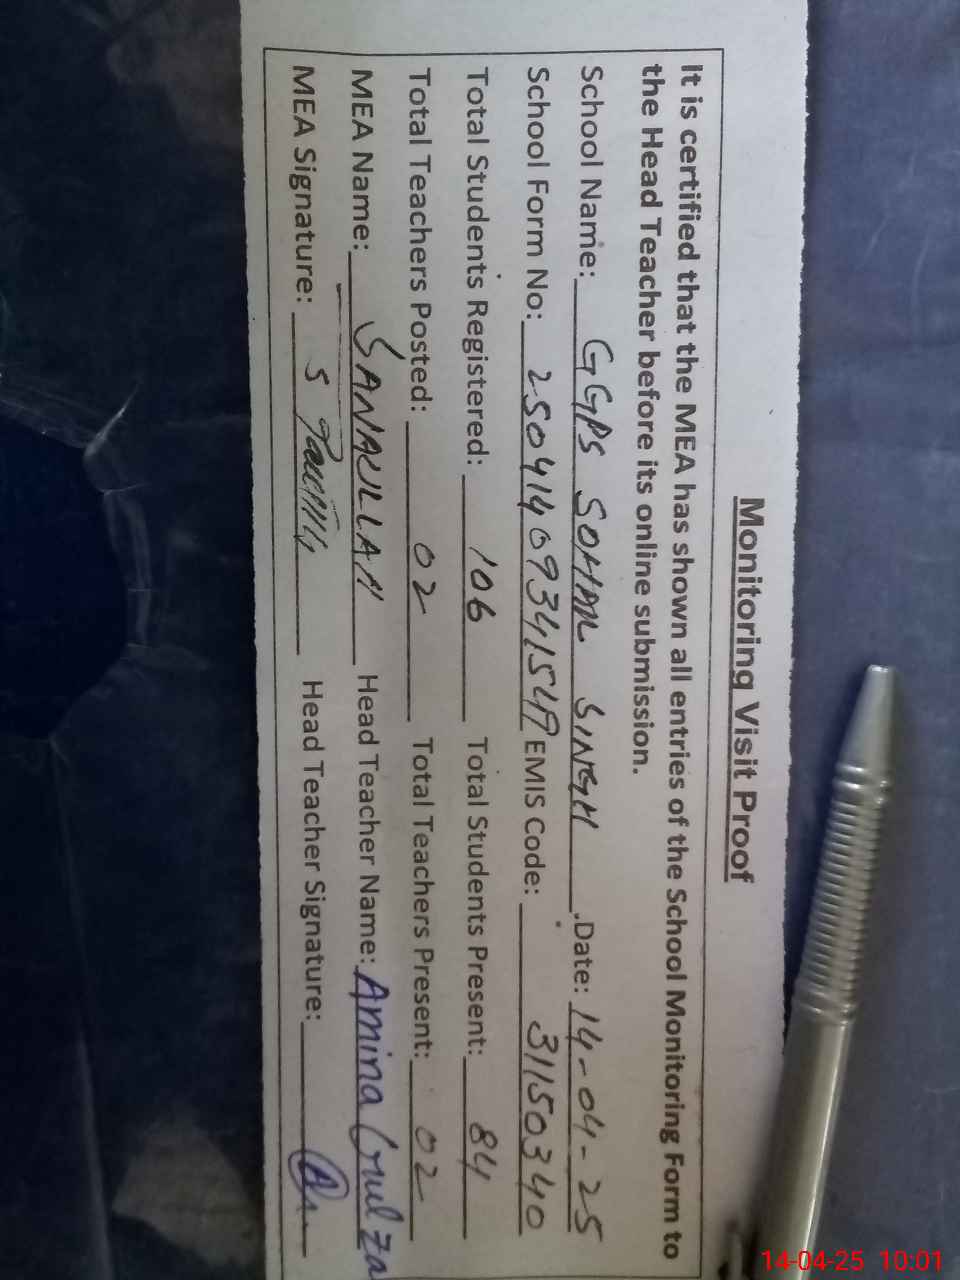 Monitoring Visit Proof
It is certified that the MEA has shown all entries of the School Monitoring Form to
the Head Teacher before its online submission.
School Name: GGPS SOHAN SINGH .Date: 14-04-25
School Form No: EMIS Code: 31150340
Total Students Registered: 106 Total Students Present: 84
Total Teachers Posted: 02 Total Teachers Present: 02
MEA Name: SANAULLAH Head Teacher Name: Amina Gulza
MEA Signature: Head Teacher Signature:
14-04-25 10:01